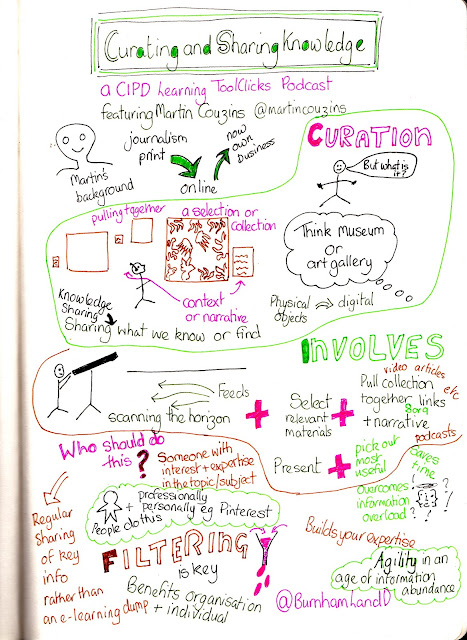 Curating and Sharing Knowledge
a CIPD Learning ToolClicks Podcast
featuring Martin Couzins @martincouzins
journalism
print
online
now
own
business
Martin's
background
CURATION
But what is
it?
Think Museum
or
art gallery
Physical
objects
digital
pulling together
a selection or
collection
context
or narrative
Knowledge
Sharing
Sharing what we know or find
INVOLVES
Feeds
scanning the horizon
+
Select
relevant
materials
+
video articles
etc
Pull collection
together links
+ narrative
podcasts
Present
+
pick out
most
useful
saves
time
overcomes
information
overload?
!
?
?
!
?
Who should do
this?
Someone with
interest + expertise
in the topic/subject
professionally
+ personally eg Pinterest
People do this
Regular
sharing
of key
info
rather than
an e-learning dump
FILTERING
is key
Benefits organisation
+ individual
Builds your expertise
Agility in an
age of information
abundance
@BurnhamLandD